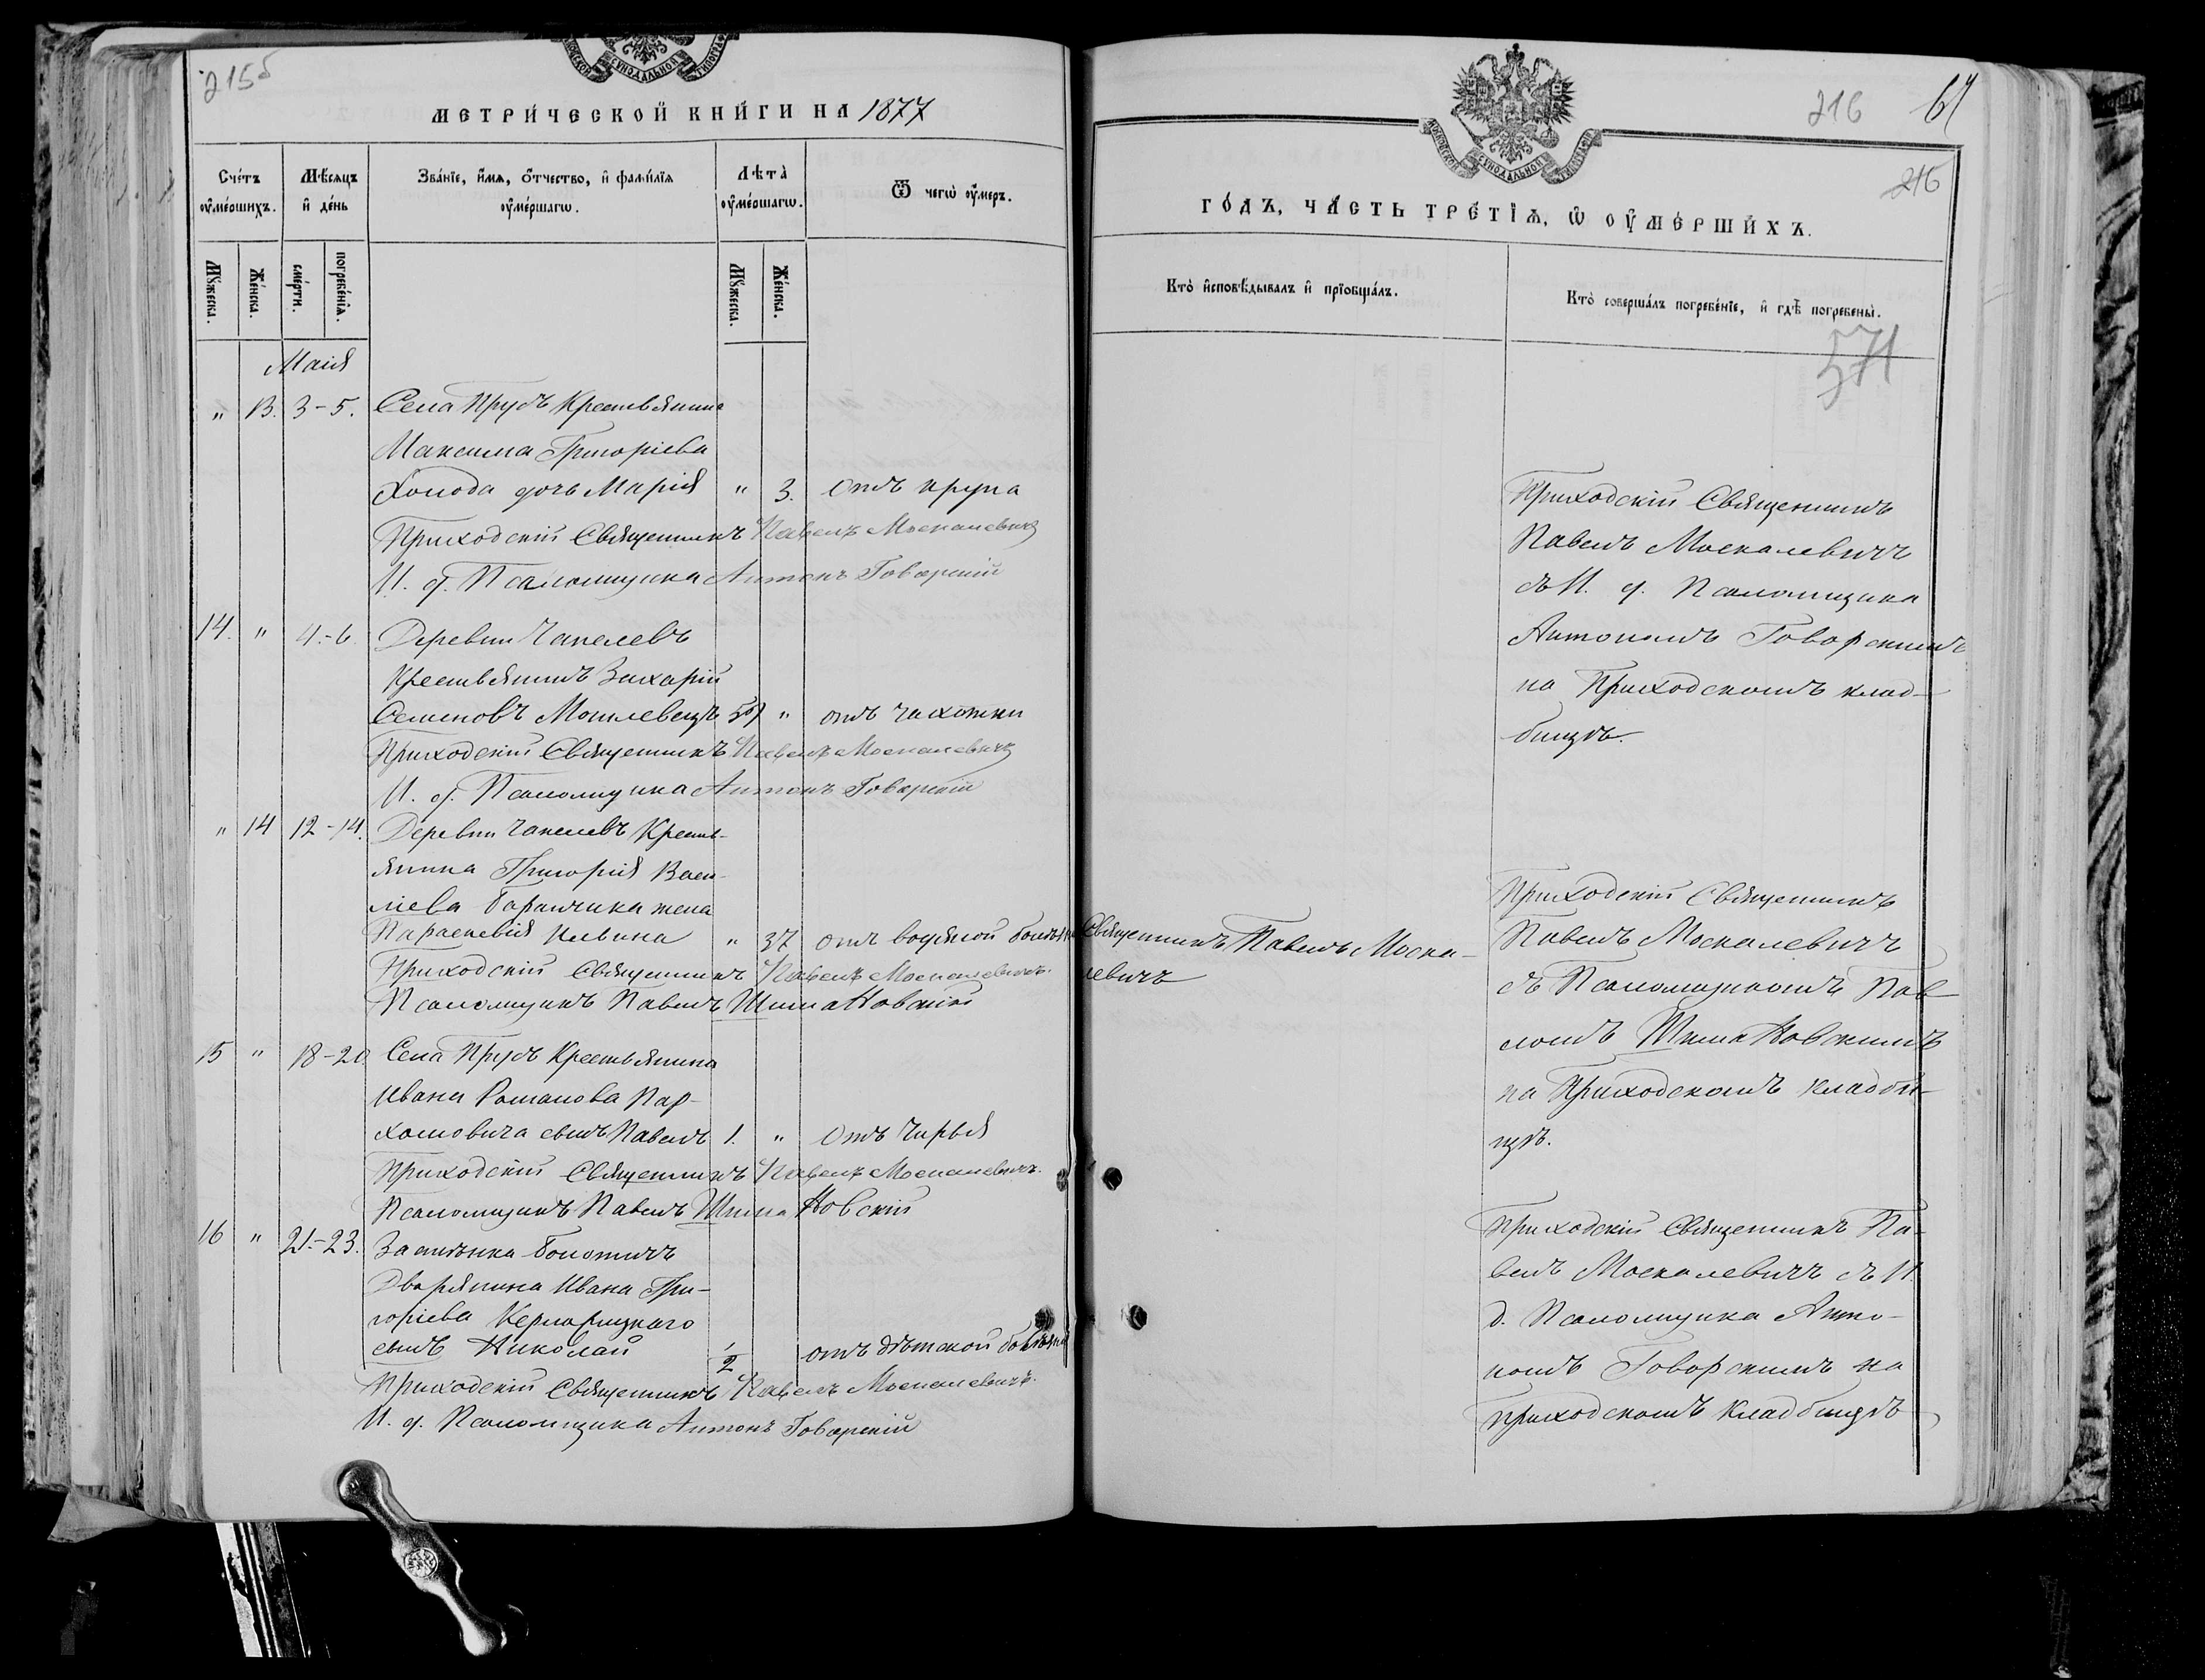 215б
МЕТРИЧЕСКОЙ КНИГИ НА 1877
Счетъ оумершихъ.
Мѣсяцъ и день
Званіе, имя, отчество, и фамилія оумершагω.
Лѣта оумершагω.
Ѿ чегω оумеръ.
Мꙋжеска.
Женска.
смерти.
погребенія.
Мꙋжеска.
Женска.
Маія
" 13. 3-5. Села Прудъ Крестьянина
Максима Григоріева
Холода дочь Марія " 3. отъ крупа
Приходскій Священникъ Павелъ Москалевичъ
И. д. Псаломщика Антонъ Говорскій
14. " 4.-6. Деревни Чапелевъ
Крестьянинъ Захарій
Семеновъ Могилевецъ " отъ чахотки
Приходскій Священникъ Павелъ Москалевичъ
И. д. Псаломщика Антонъ Говорскій
" 14 12-14. Деревни Чапелевъ Кресть-
янина Григорія Васи-
ліева Баранчика жена
Параскевія Ильина " 37 отъ водяной болѣзни
Приходскій Священникъ Павелъ Москалевичъ.
Псаломщикъ Павелъ Шимановскій
15 " 18-20. Села Прудъ Крестьянина
Ивана Романова Пар-
хомовича сынъ Павелъ 1. " Отъ Чирья
Приходскій Священникъ Павелъ Москалевичъ.
Псаломщикъ Павелъ Шимановскій
16 " 21.-23. Застѣнка Болотичъ
Дворянина Ивана Гри-
горіева
сынъ Николай 1/2 отъ дѣтской болѣзни
Приходскій Священникъ Павелъ Москалевичъ.
И. д. Псаломщика Антонъ Говорскій
МОСКОВСКОЙ СУНОДАЛЬНОЙ ТИПОГРАФІИ
216 61
216
ГОДЪ, ЧАСТЬ ТРЕТІЯ, Ѡ ОУМЕРШИХЪ.
Кто исповѣдывалъ и пріобщалъ.
Кто совершалъ погребеніе, и гдѣ погребены.
371
Приходскій Священникъ
Павелъ Москалевичъ
съ И. д. Псаломщика
Антономъ Говорскимъ
на Приходскомъ клад-
бищѣ.
Священникъ Павелъ Моска-
левичъ
Приходскій Священникъ
Павелъ Москалевичъ
съ Псаломщикомъ Пав-
ломъ Шимановскимъ
на Приходскомъ кладби-
щѣ.
Приходскій Священникъ Па-
велъ Москалевичъ съ И.
д. Псаломщика Анто-
номъ Говорскимъ на
приходскомъ кладбищѣ